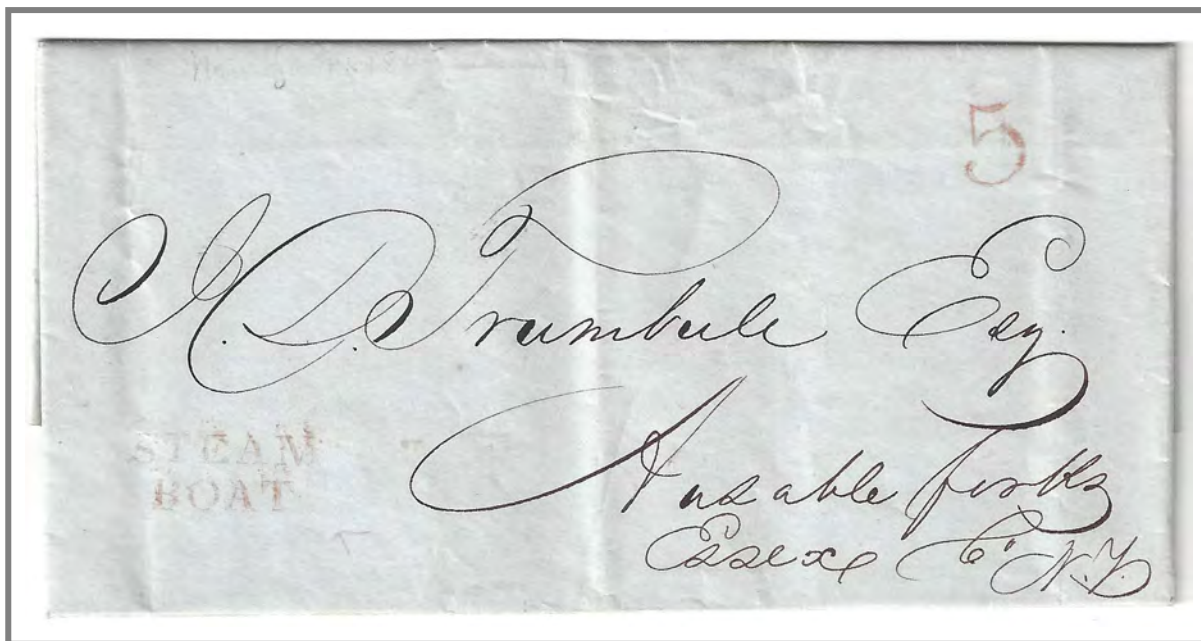 5
J. D. Trumbull Esq.
STEAM
BOAT
Ausable forks
Essex Co N.Y.